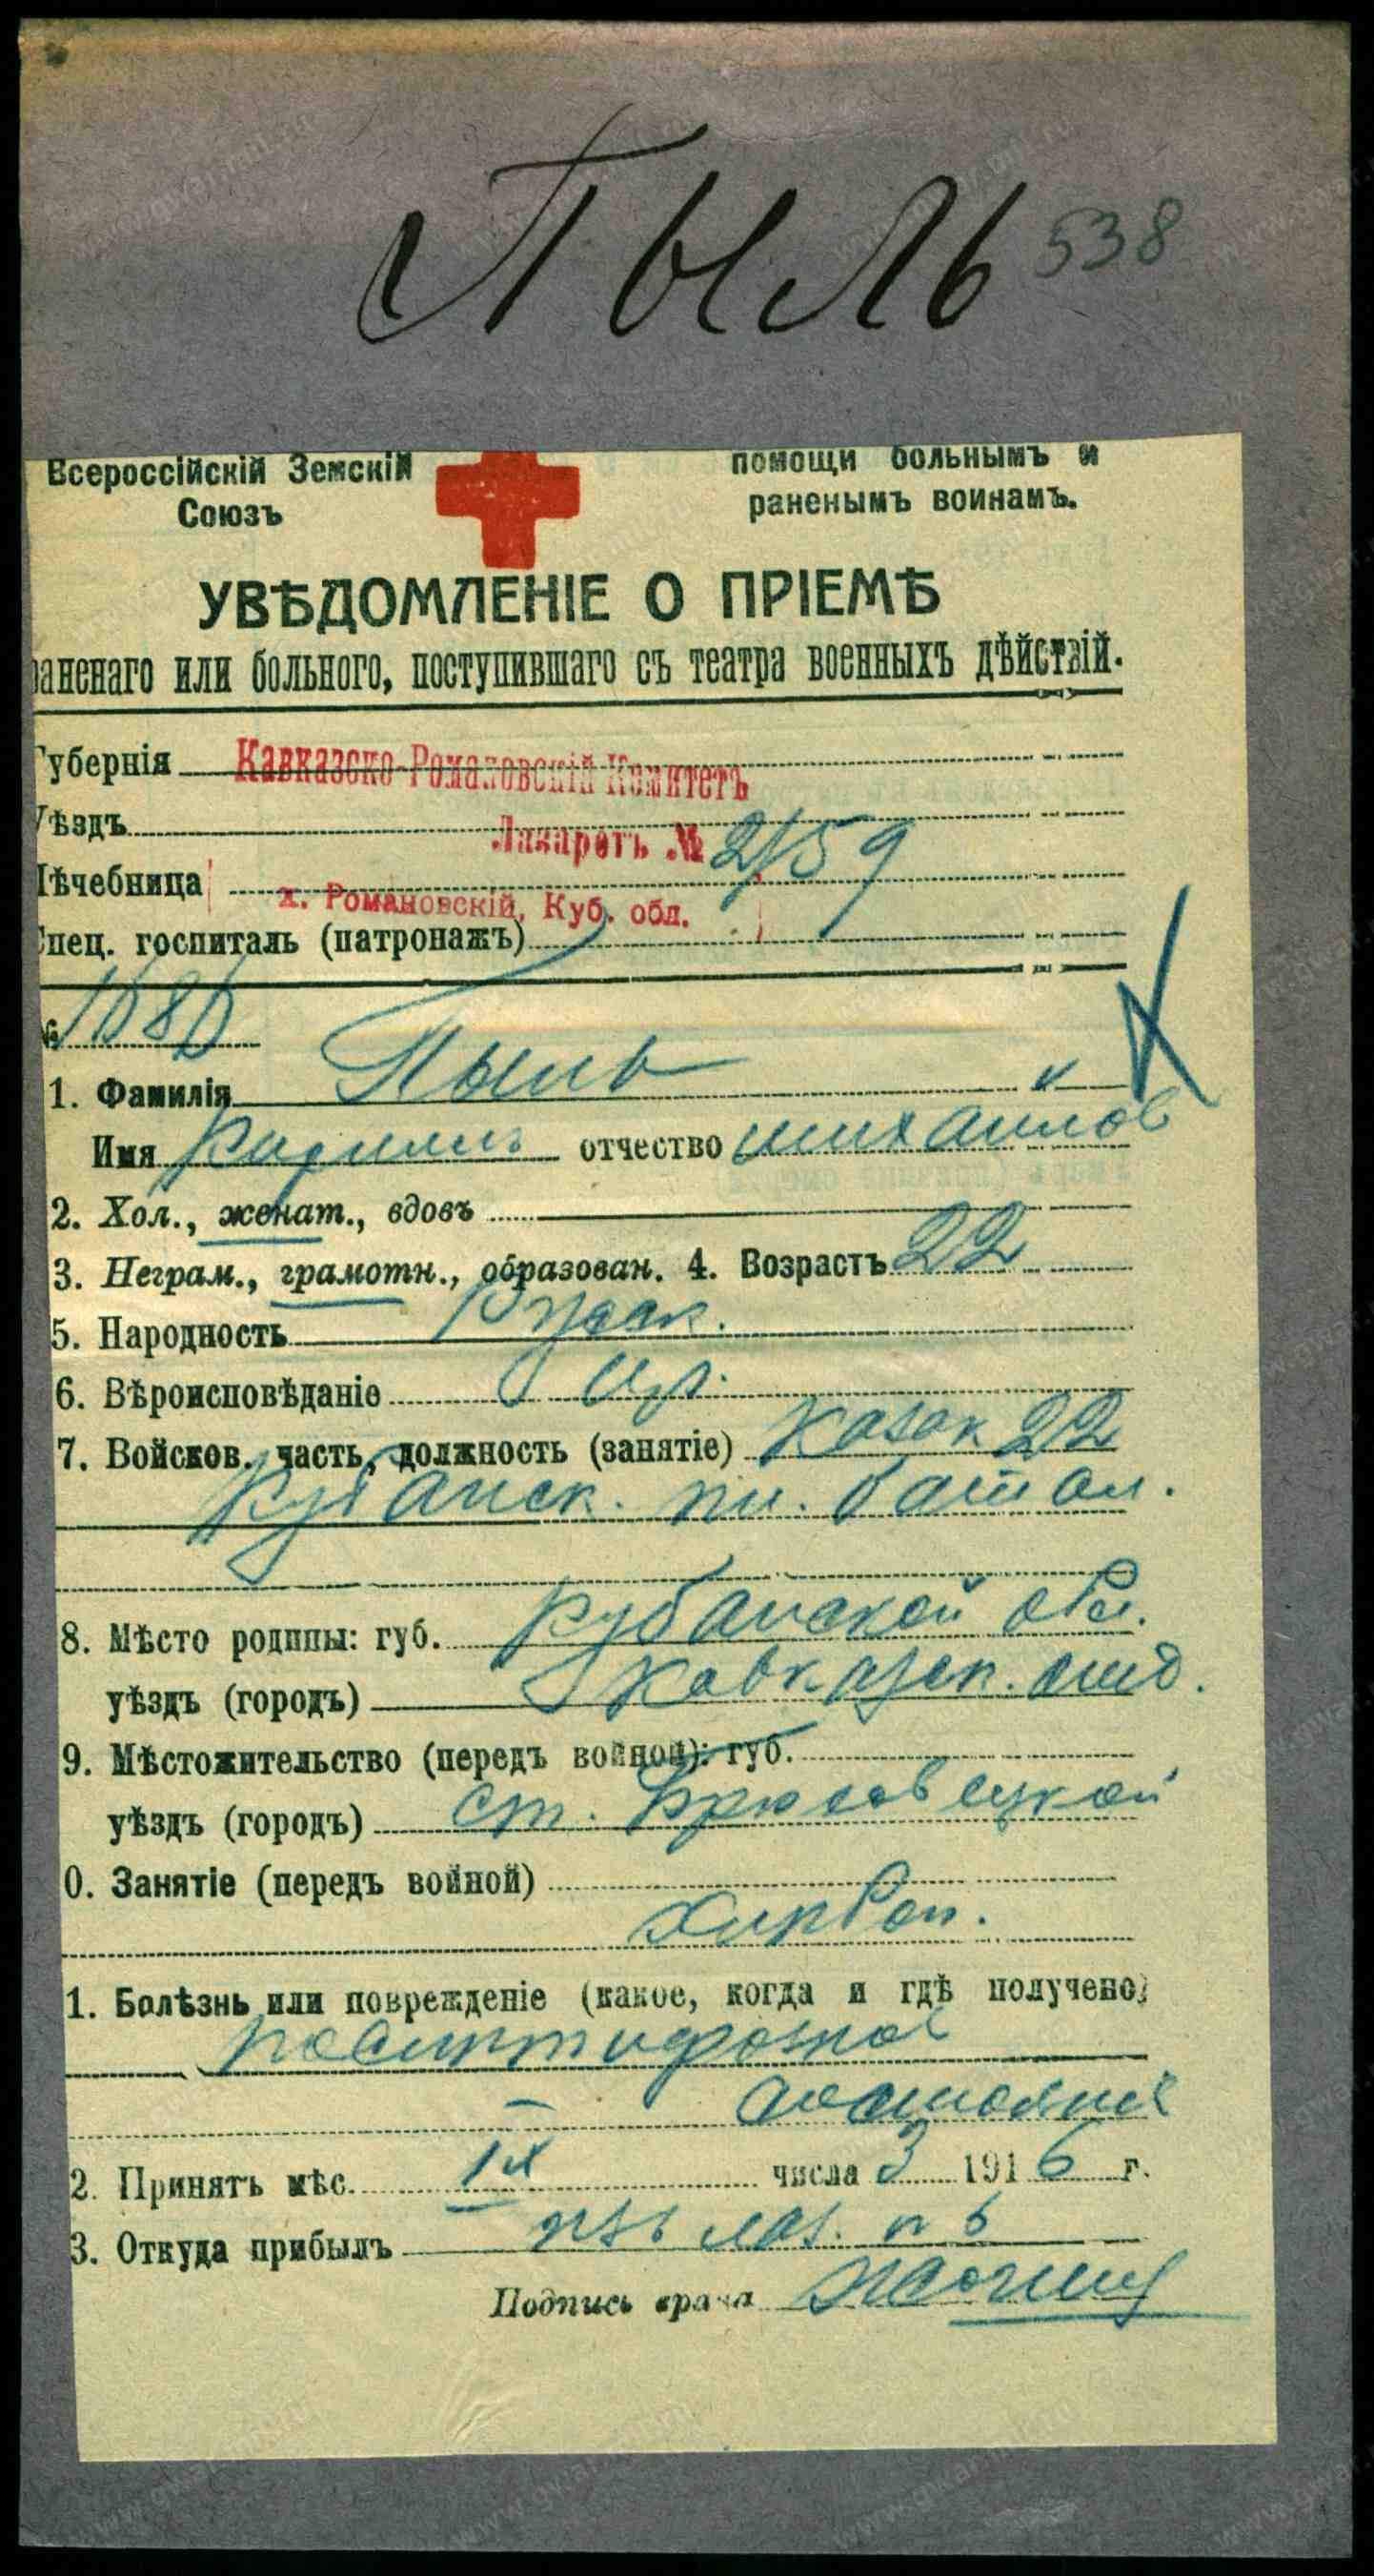 Пыль 538
Всероссійскій Земскій
Союзъ
помощи больнымъ и
раненымъ воинамъ.
УВѢДОМЛЕНІЕ О ПРІЕМѢ
раненаго или больного, поступившаго съ театра военныхъ дѣйствій.
Губернія Кавказско-Романовскій Комитетъ
Уѣздъ
Лазаретъ № 2/59
Лѣчебница
х. Романовскій, Куб. обл.
Спец. госпиталь (патронажъ)
№
1. Фамилія Пыль
Имя Кирилл отчество Михаилов
2. Хол., женат., вдовъ
3. Неграм., грамотн., образован. 4. Возрастъ 22
5. Народность Русск.
6. Вѣроисповѣданіе Пр.
7. Войсков. часть, должность (занятіе) Казак 22
Кубанск. пл. батал.
8. Мѣсто родины: губ. Кубанской обл.
уѣздъ (городъ) Кавказск. отд.
9. Мѣстожительство (передъ войной): губ.
уѣздъ (городъ) ст. Брюховецкой
0. Занятіе (передъ войной)
Хлѣбоп.
1. Болѣзнь или поврежденіе (какое, когда и гдѣ получено)
послѣтифозное
состояніе
2. Принятъ мѣс. IX числа 3 1916 г.
3. Откуда прибылъ изъ лаз. № 6
Подпись врача
www.gwar.mil.ru